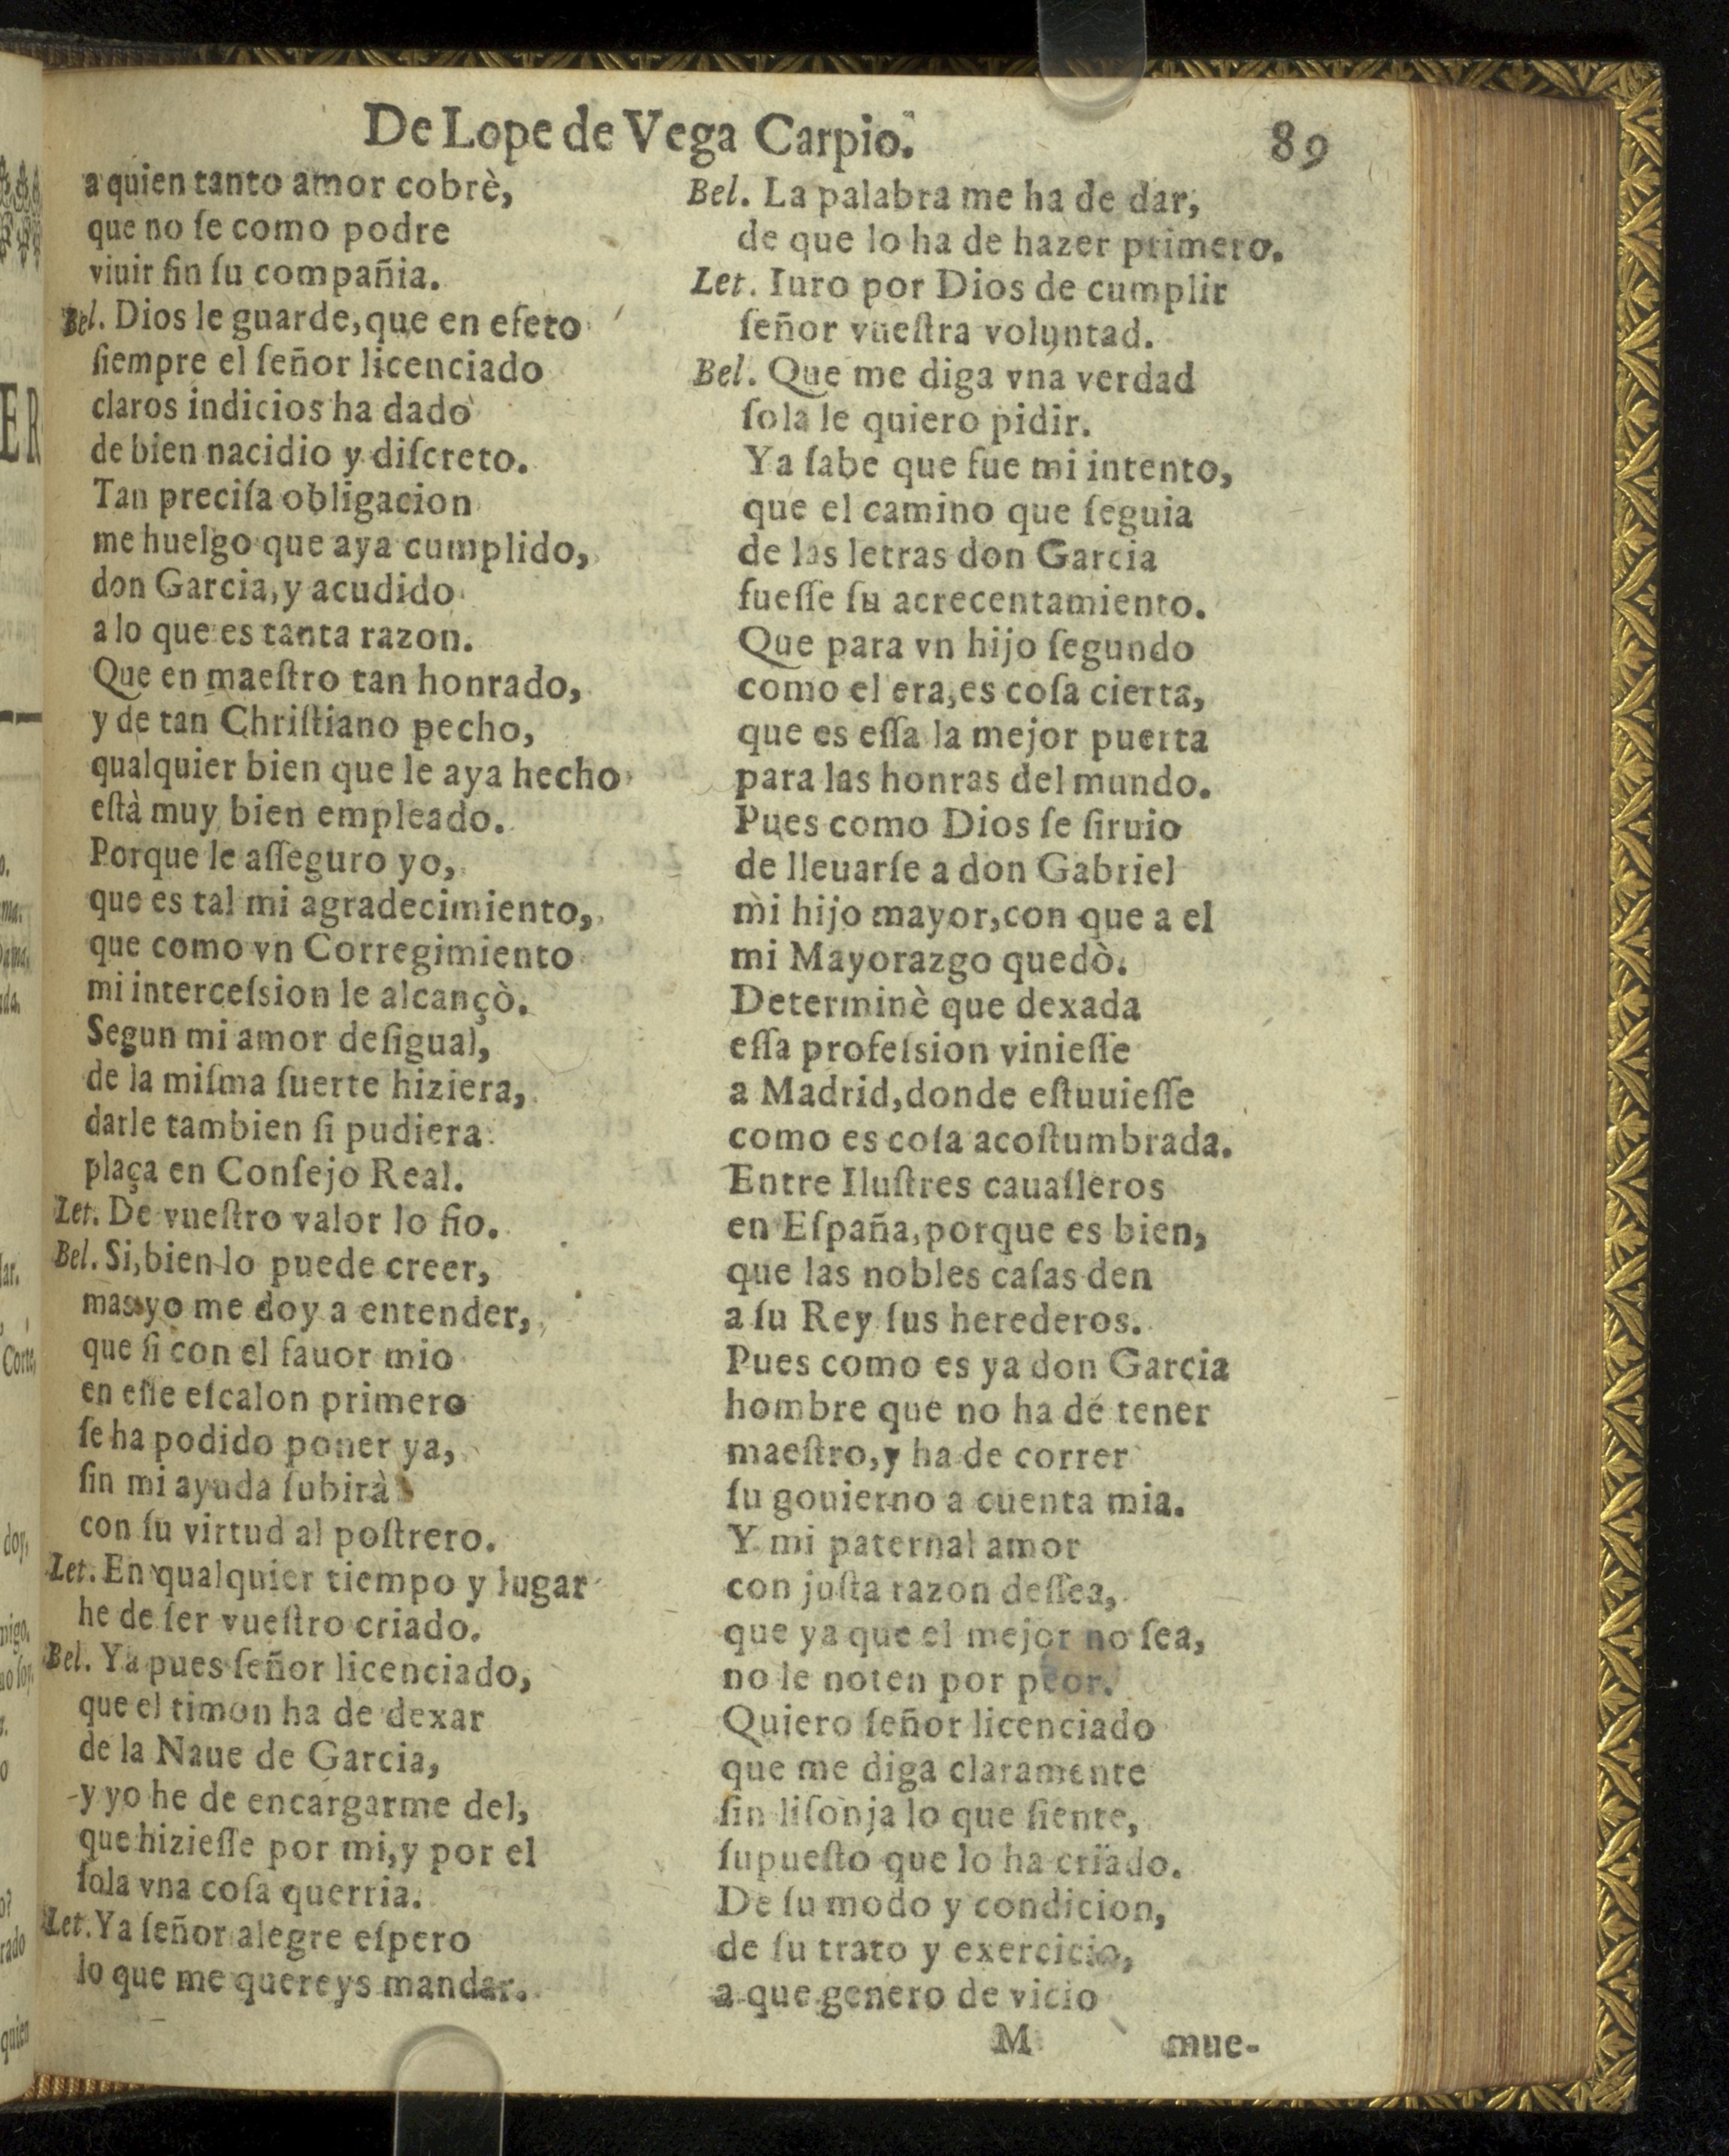 De Lope de Vega Carpio.
89
a quien tanto amor cobrè,
que no ſe como podre
viuir ſin ſu compañia.
Bel. Dios le guarde, que en efeto
ſiempre el ſeñor licenciado
claros indicios ha dado
de bien nacidio y diſcreto.
Tan preciſa obligacion
me huelgo que aya cumplido,
don Garcia, y acudido
a lo que es tanta razon.
Que en maeſtro tan honrado,
y de tan Chriſtiano pecho,
qualquier bien que le aya hecho
eſtà muy bien empleado.
Porque le aſſeguro yo,
que es tal mi agradecimiento,
que como vn Corregimiento
mi interceſsion le alcançò.
Segun mi amor deſigual,
de la miſma ſuerte hiziera,
darle tambien ſi pudiera
plaça en Conſejo Real.
Let. De vueſtro valor lo fio.
Bel. Si, bien lo puede creer,
mas yo me doy a entender,
que ſi con el fauor mio
en eſſe eſcalon primero
ſe ha podido poner ya,
ſin mi ayuda ſubirà
con ſu virtud al poſtrero.
Let. En qualquier tiempo y lugar
he de ſer vueſtro criado.
Bel. Ya pues ſeñor licenciado,
que el timon ha de dexar
de la Naue de Garcia,
y yo he de encargarme del,
que hizieſſe por mi, y por el
ſola vna coſa querria.
Let. Ya ſeñor alegre eſpero
lo que me quereys mandar.
Bel. La palabra me ha de dar,
de que lo ha de hazer primero.
Let. Iuro por Dios de cumplir
ſeñor vueſtra voluntad.
Bel. Que me diga vna verdad
ſola le quiero pidir.
Ya ſabe que fue mi intento,
que el camino que ſeguia
de las letras don Garcia
fueſſe ſu acrecentamiento.
Que para vn hijo ſegundo
como el era, es coſa cierta,
que es eſſa la mejor puerta
para las honras del mundo.
Pues como Dios ſe ſiruio
de lleuarſe a don Gabriel
mi hijo mayor, con que a el
mi Mayorazgo quedò.
Determinè que dexada
eſſa profeſsion vinieſſe
a Madrid, donde eſtuuieſſe
como es coſa acoſtumbrada.
Entre Iluſtres cauaſleros
en Eſpaña, porque es bien,
que las nobles caſas den
a ſu Rey ſus herederos.
Pues como es ya don Garcia
hombre que no ha de tener
maeſtro, y ha de correr
ſu gouierno a cuenta mia.
Y mi paternal amor
con juſta razon deſſea,
que ya que el mejor no ſea,
no le noten por peor.
Quiero ſeñor licenciado
que me diga claramente
ſin liſonja lo que ſiente,
ſupueſto que lo ha criado.
De ſu modo y condicion,
de ſu trato y exercicio,
a que genero de vicio
M
mue-